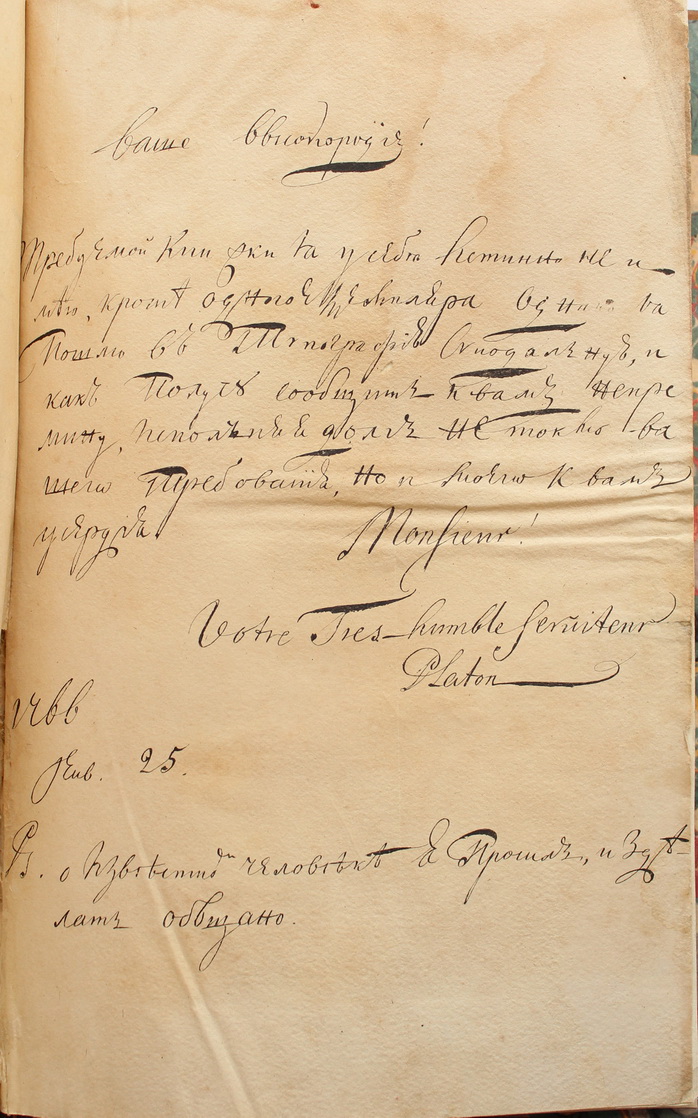 Ваше Высокородїе!
Требуемой книжки я у себя истинно не и-
мѣю, кромѣ одного Екземпляра однако
пошлю въ Типографїю Сѵнодальную, и
какъ получу сообщить к вамъ непре
мину, исполняя долгъ не токмо ва
шего требованїя, но и моего к вамъ
усердїя.
Monsieur!
Votre Tres-humble serviteur
Platon
1766
Янв. 25.
Ps. о извѣстномъ человѣкѣ я просилъ, и здѣ-
лать обѣщано.